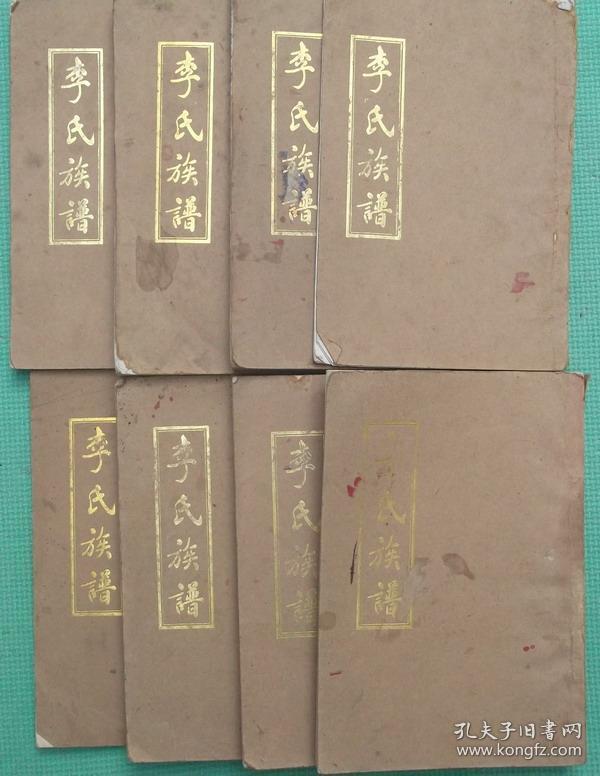 李氏族譜
李氏族譜
李氏族譜
李氏族譜
李氏族譜
李氏族譜
李氏族譜
氏族譜
孔夫子旧书网
www.kongfz.com